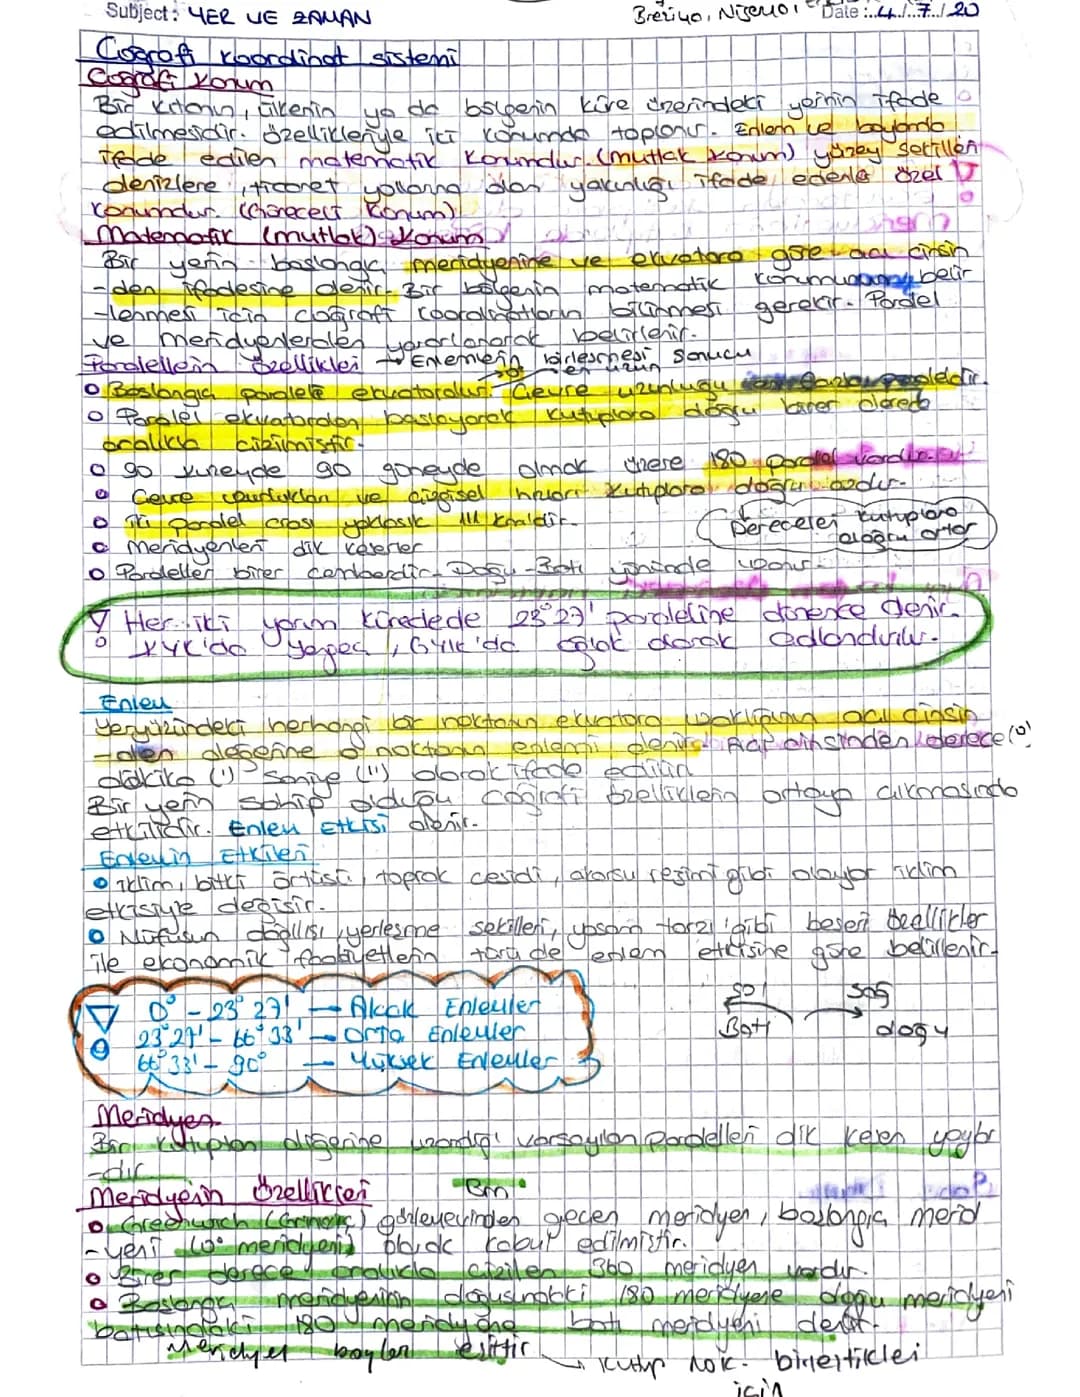 Subject: YER VE ZAMAN Date: 4/7/20
Coğrafi koordinat sistemi
Coğrafi Konum
Bir kıtanın, ülkenin ya da bölgenin küre üzerindeki yerinin ifade
edilmesidir. Özellikleriyle iki konumda toplanır. Enlem ve boylamla
ifade edilen matematik konumdur. (mutlak konum) yüzey şekilleri
denizlere, ticaret yollarına olan yakınlığı ifade edenle özel
konumdur. (Göreceli konum)
Matematik (mutlak) Konum
Bir yerin başlangıç meridyenine ve ekvatora göre açı cinsin
-den ifadesine denir. Bir bölgenin matematik konumunun belir
-lenmesi için coğrafi koordinatların bilinmesi gerekir. Paralel
ve meridyenlerden yararlanarak belirlenir.
Paralellerin Özellikleri → Enlemlerin birleşmesi sonucu
o Başlangıç paraleli ekvatordur. Çevre uzunluğu en uzun paraleldir.
o Paralel ekvatordan başlayarak kutuplara doğru birer derece
aralıkla çizilmiştir.
o 90 kuzeyde 90 güneyde olmak üzere 180 paralel vardır.
o Çevre uzunlukları ve çizgisel hızları kutuplara doğru azalır.
o İki paralel arası yaklaşık 111 km'dir.
Dereceleri kutuplara
doğru artar
o Meridyenleri dik keserler
o Paraleller birer çemberdir. Doğu-Batı yönünde uzanır.
Her iki yarım kürede de 23°27' paraleline dönence denir.
KYK'da Yengeç, GYK'da oğlak olarak adlandırılır.
Enlem
Yeryüzündeki herhangi bir noktanın ekvatora uzaklığının açı cinsin
-den değerine o noktanın enlemi denir. Açı cinsinden derece (°)
dakika (') Saniye (") olarak ifade edilir
Bir yerin sahip olduğu coğrafi özelliklerin ortaya çıkmasında
etkilidir. Enlem Etkisi denir.
Enlemin Etkileri
o İklim, bitki örtüsü, toprak çeşidi, akarsu rejimi gibi olaylar iklim
etkisiyle değişir.
o Nüfusun dağılışı, yerleşme şekilleri, yaşam tarzı gibi beşeri özellikler
ile ekonomik faaliyetlerin türü de enlem etkisine göre belirlenir.
0° - 23° 27' → Alçak Enlemler
23°27' - 66°33' → Orta Enlemler
66°33' - 90° → Yüksek Enlemler
sol sağ
Batı doğu
Meridyen
Bir kutuptan diğerine uzandığı varsayılan paralelleri dik kesen yaylar
-dır
Meridyenin Özellikleri
o Greenwich (Grinviç) gözlemevinden geçen meridyen, başlangıç merid
-yeni (0° meridyeni) olarak kabul edilmiştir.
o Birer derece aralıkla çizilen 360 meridyen vardır.
o Başlangıç meridyeninin doğusundaki 180 meridyene doğu meridyeni
batısındaki 180 meridyene batı meridyeni denir.
Meridyen boyları eşittir → Kutup nok. birleştikleri
için